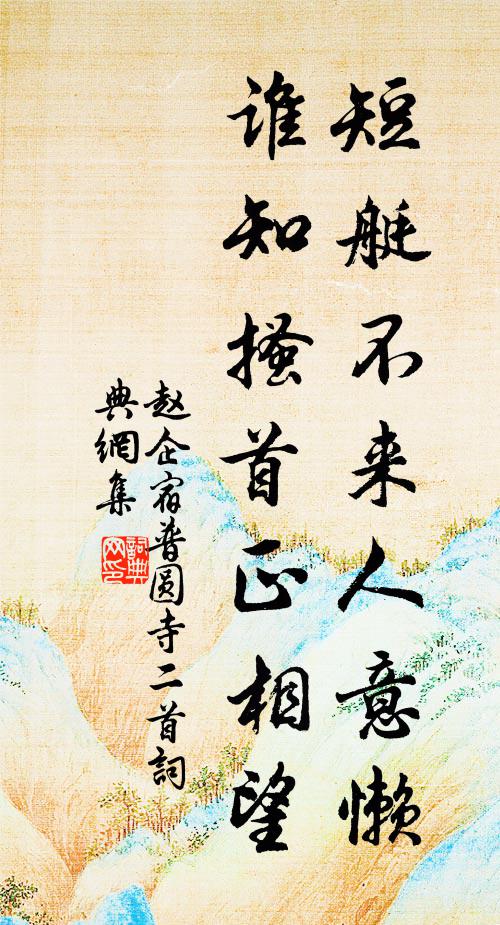 短艇不来人意懒
谁知搔首正相望
赵企宿普圆寺二首詞
典網集
詞典
网印